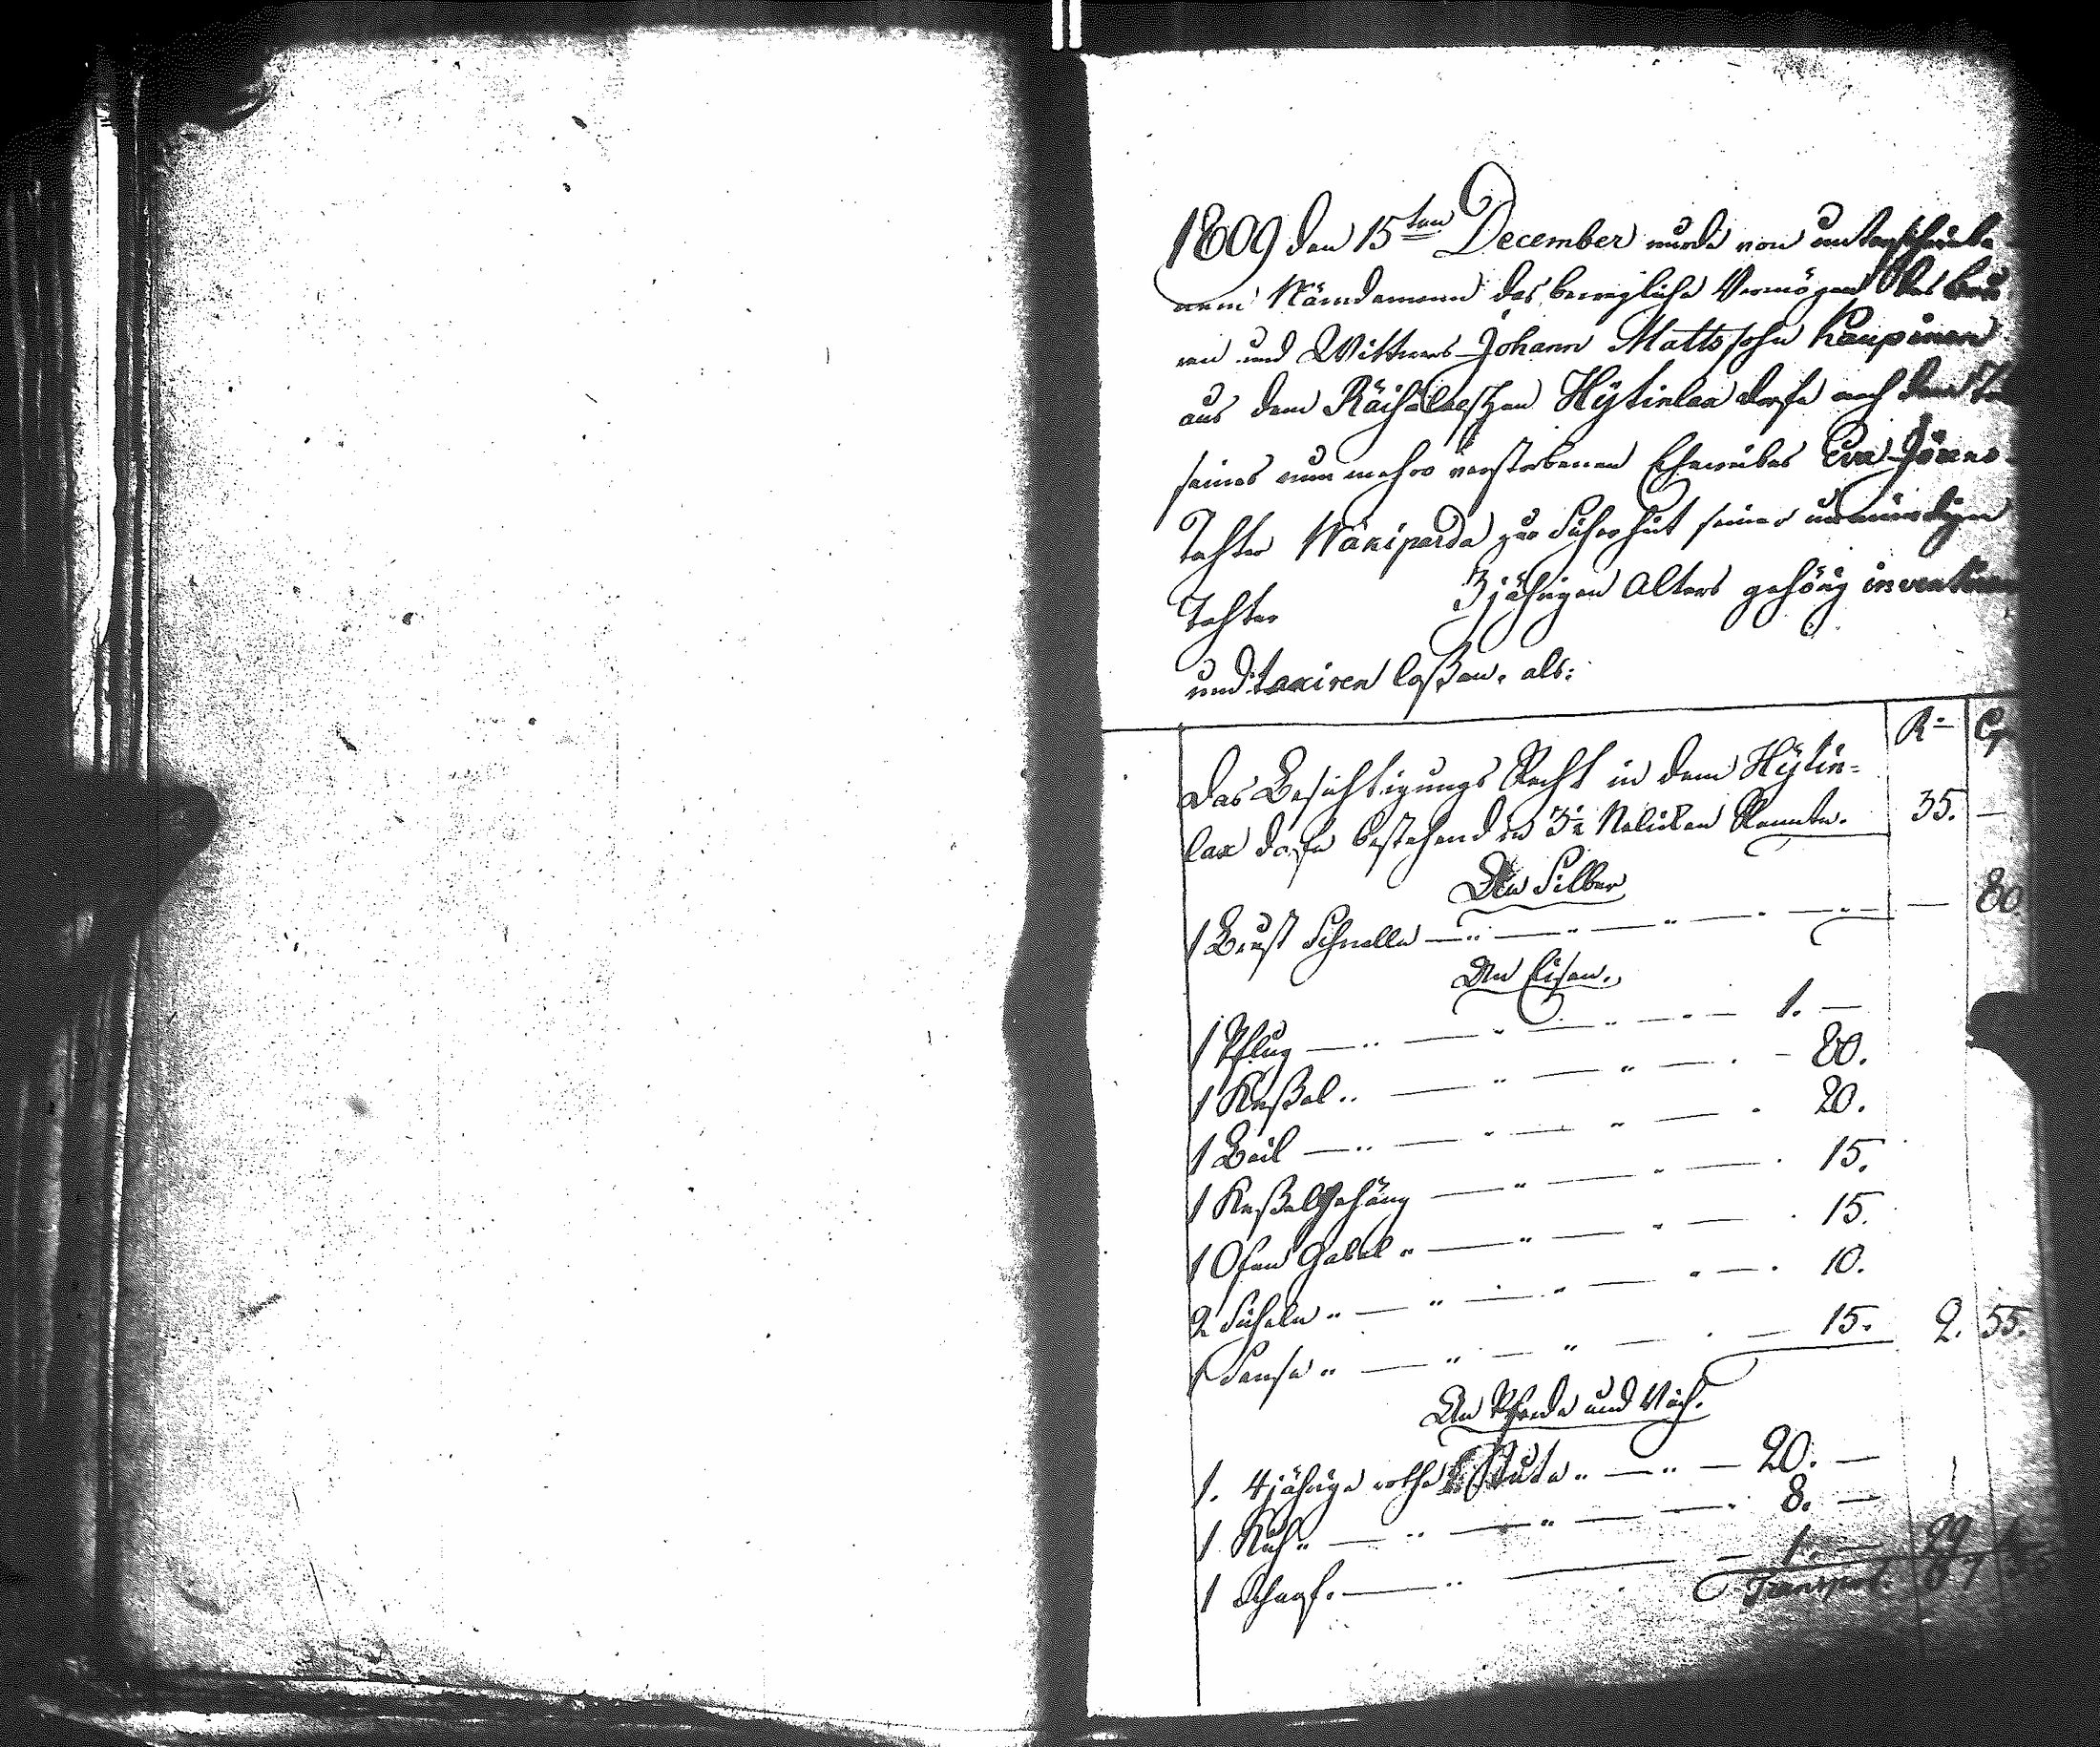 1809 den 15ten December wurde von unterschriebe
nem Nämdemann das bewegliche Vermögen des Bau
ren und Wittwers Johann Mattssohn Kaupinen
aus dem Räisäläschen Hytinlax dorfe nach dem To
seines nun mehro verstorbenen Eheweibes Eva Jöns
Tochter Näkiparda zur Sicherheit seiner unmündigen
Tochter 3jährigen Alters gehörig inventiren
und taxiren laßen, als:
R C
Das Besichtigungs Recht in dem Hytin=
lax dorfe bestehend in Nelicken Rennte. 35. —
An Silber
1 Brust Schnalle — " — " — " — — 80.
An Eisen.
1 Pflug — " — " — " — 1. —
1 Keßel " — " — " — 80.
1 Beil — " — " — " — 20.
1 Keßelgehäng — " — " — 15.
1 Ofen Gabel " — " — " — 15.
2 Sicheln " — " — " — " — 10.
1 Sense " — " — " — 15. 2. 55.
An Pferde und Vieh.
1. 4jährige rothe Stute " — " — 20. —
1 Kuh " — " — " — 8. —
1 Schaaf. — " — 1. — 29
Transport. 67